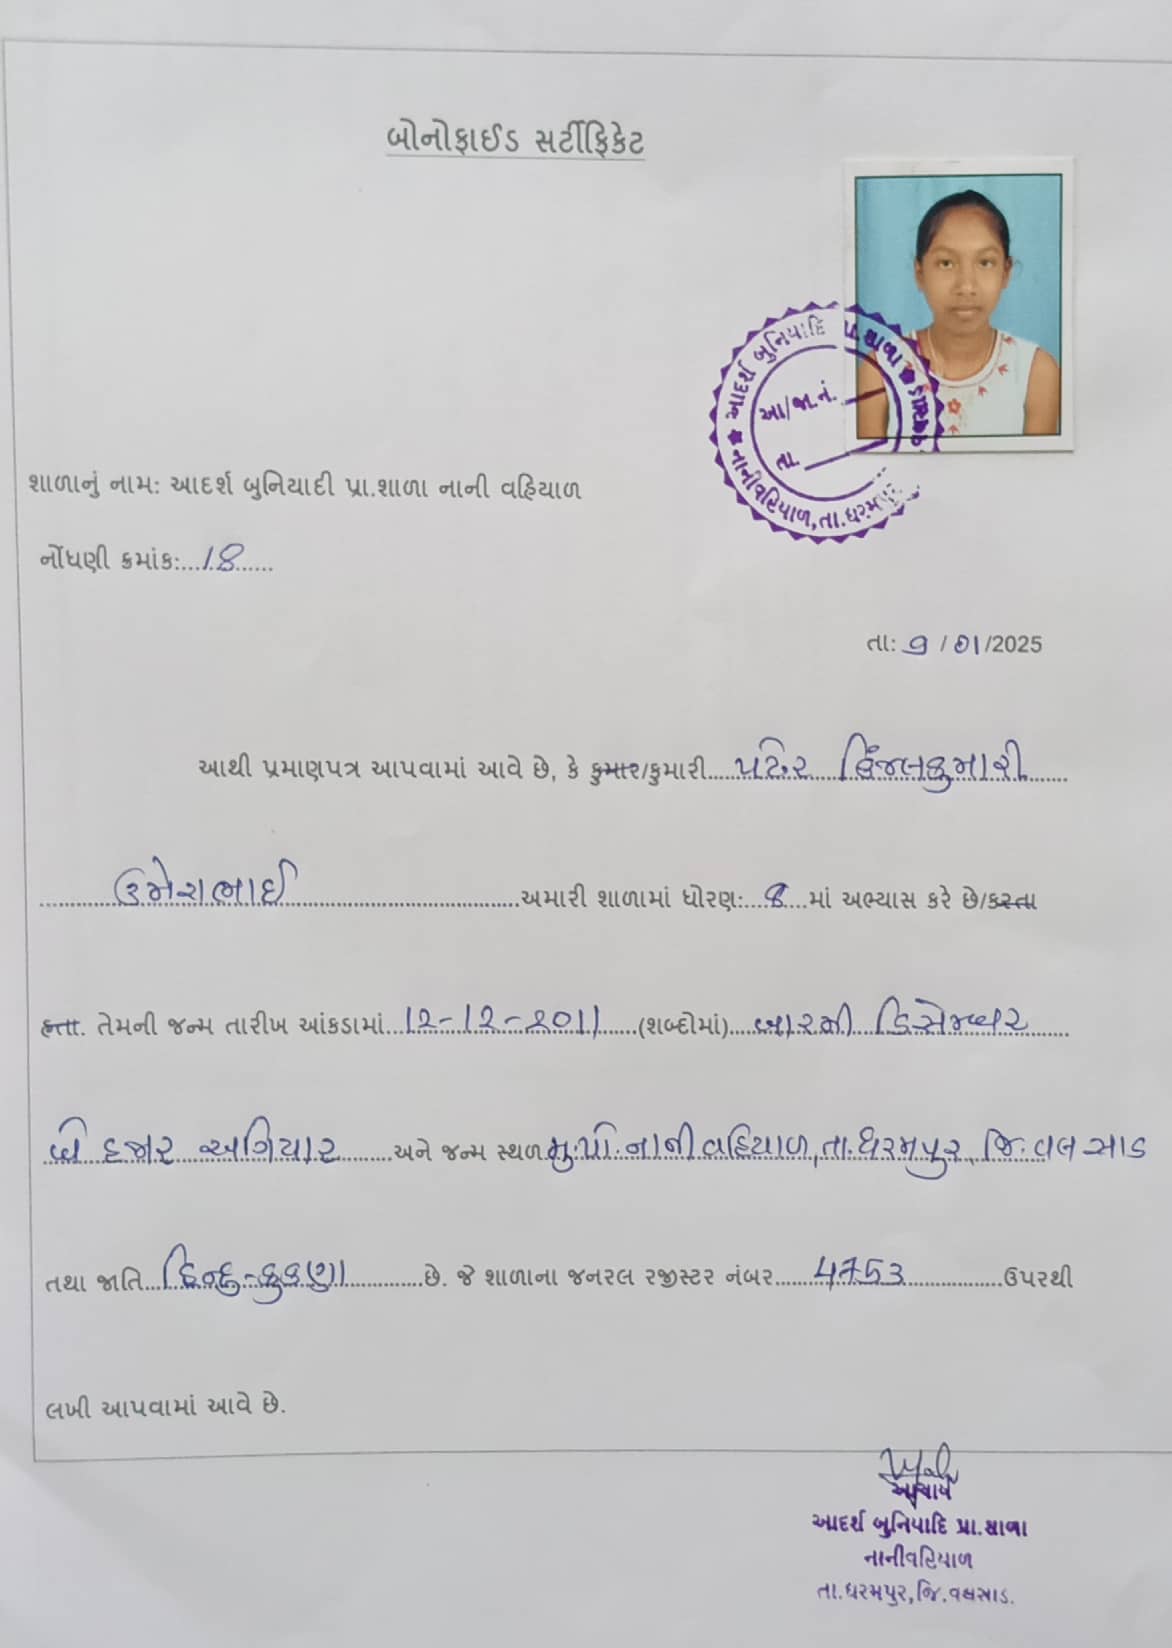 બોનોફાઈડ સર્ટીફિકેટ
આદર્શ બુનિયાદિ પ્રા.શાળા
આ/જા.નં.
તા.
નાનીવહિયાળ, તા.ધરમપુર
શાળાનું નામ: આદર્શ બુનિયાદી પ્રા.શાળા નાની વહિયાળ
નોંધણી ક્રમાંક:...18......
તા: 9 / 01 /2025
આથી પ્રમાણપત્ર આપવામાં આવે છે, કે કુમાર/કુમારી.... પટેલ કિંજલકુમારી
ઉમેશભાઈ અમારી શાળામાં ધોરણ:....8...માં અભ્યાસ કરે છે/કરતા
હતા. તેમની જન્મ તારીખ આંકડામાં...12-12-2011.....(શબ્દોમાં)....બારમી ડિસેમ્બર
બે હજાર અગિયાર.......અને જન્મ સ્થળ મુ.પો.નાની વહિયાળ, તા.ધરમપુર, જિ.વલસાડ
તથા જાતિ...હિન્દુ-કુકણા..........છે. જે શાળાના જનરલ રજીસ્ટર નંબર......4753.............ઉપરથી
લખી આપવામાં આવે છે.
આચાર્ય
આદર્શ બુનિયાદિ પ્રા.શાળા
નાનીવહિયાળ
તા.ધરમપુર, જિ.વલસાડ.